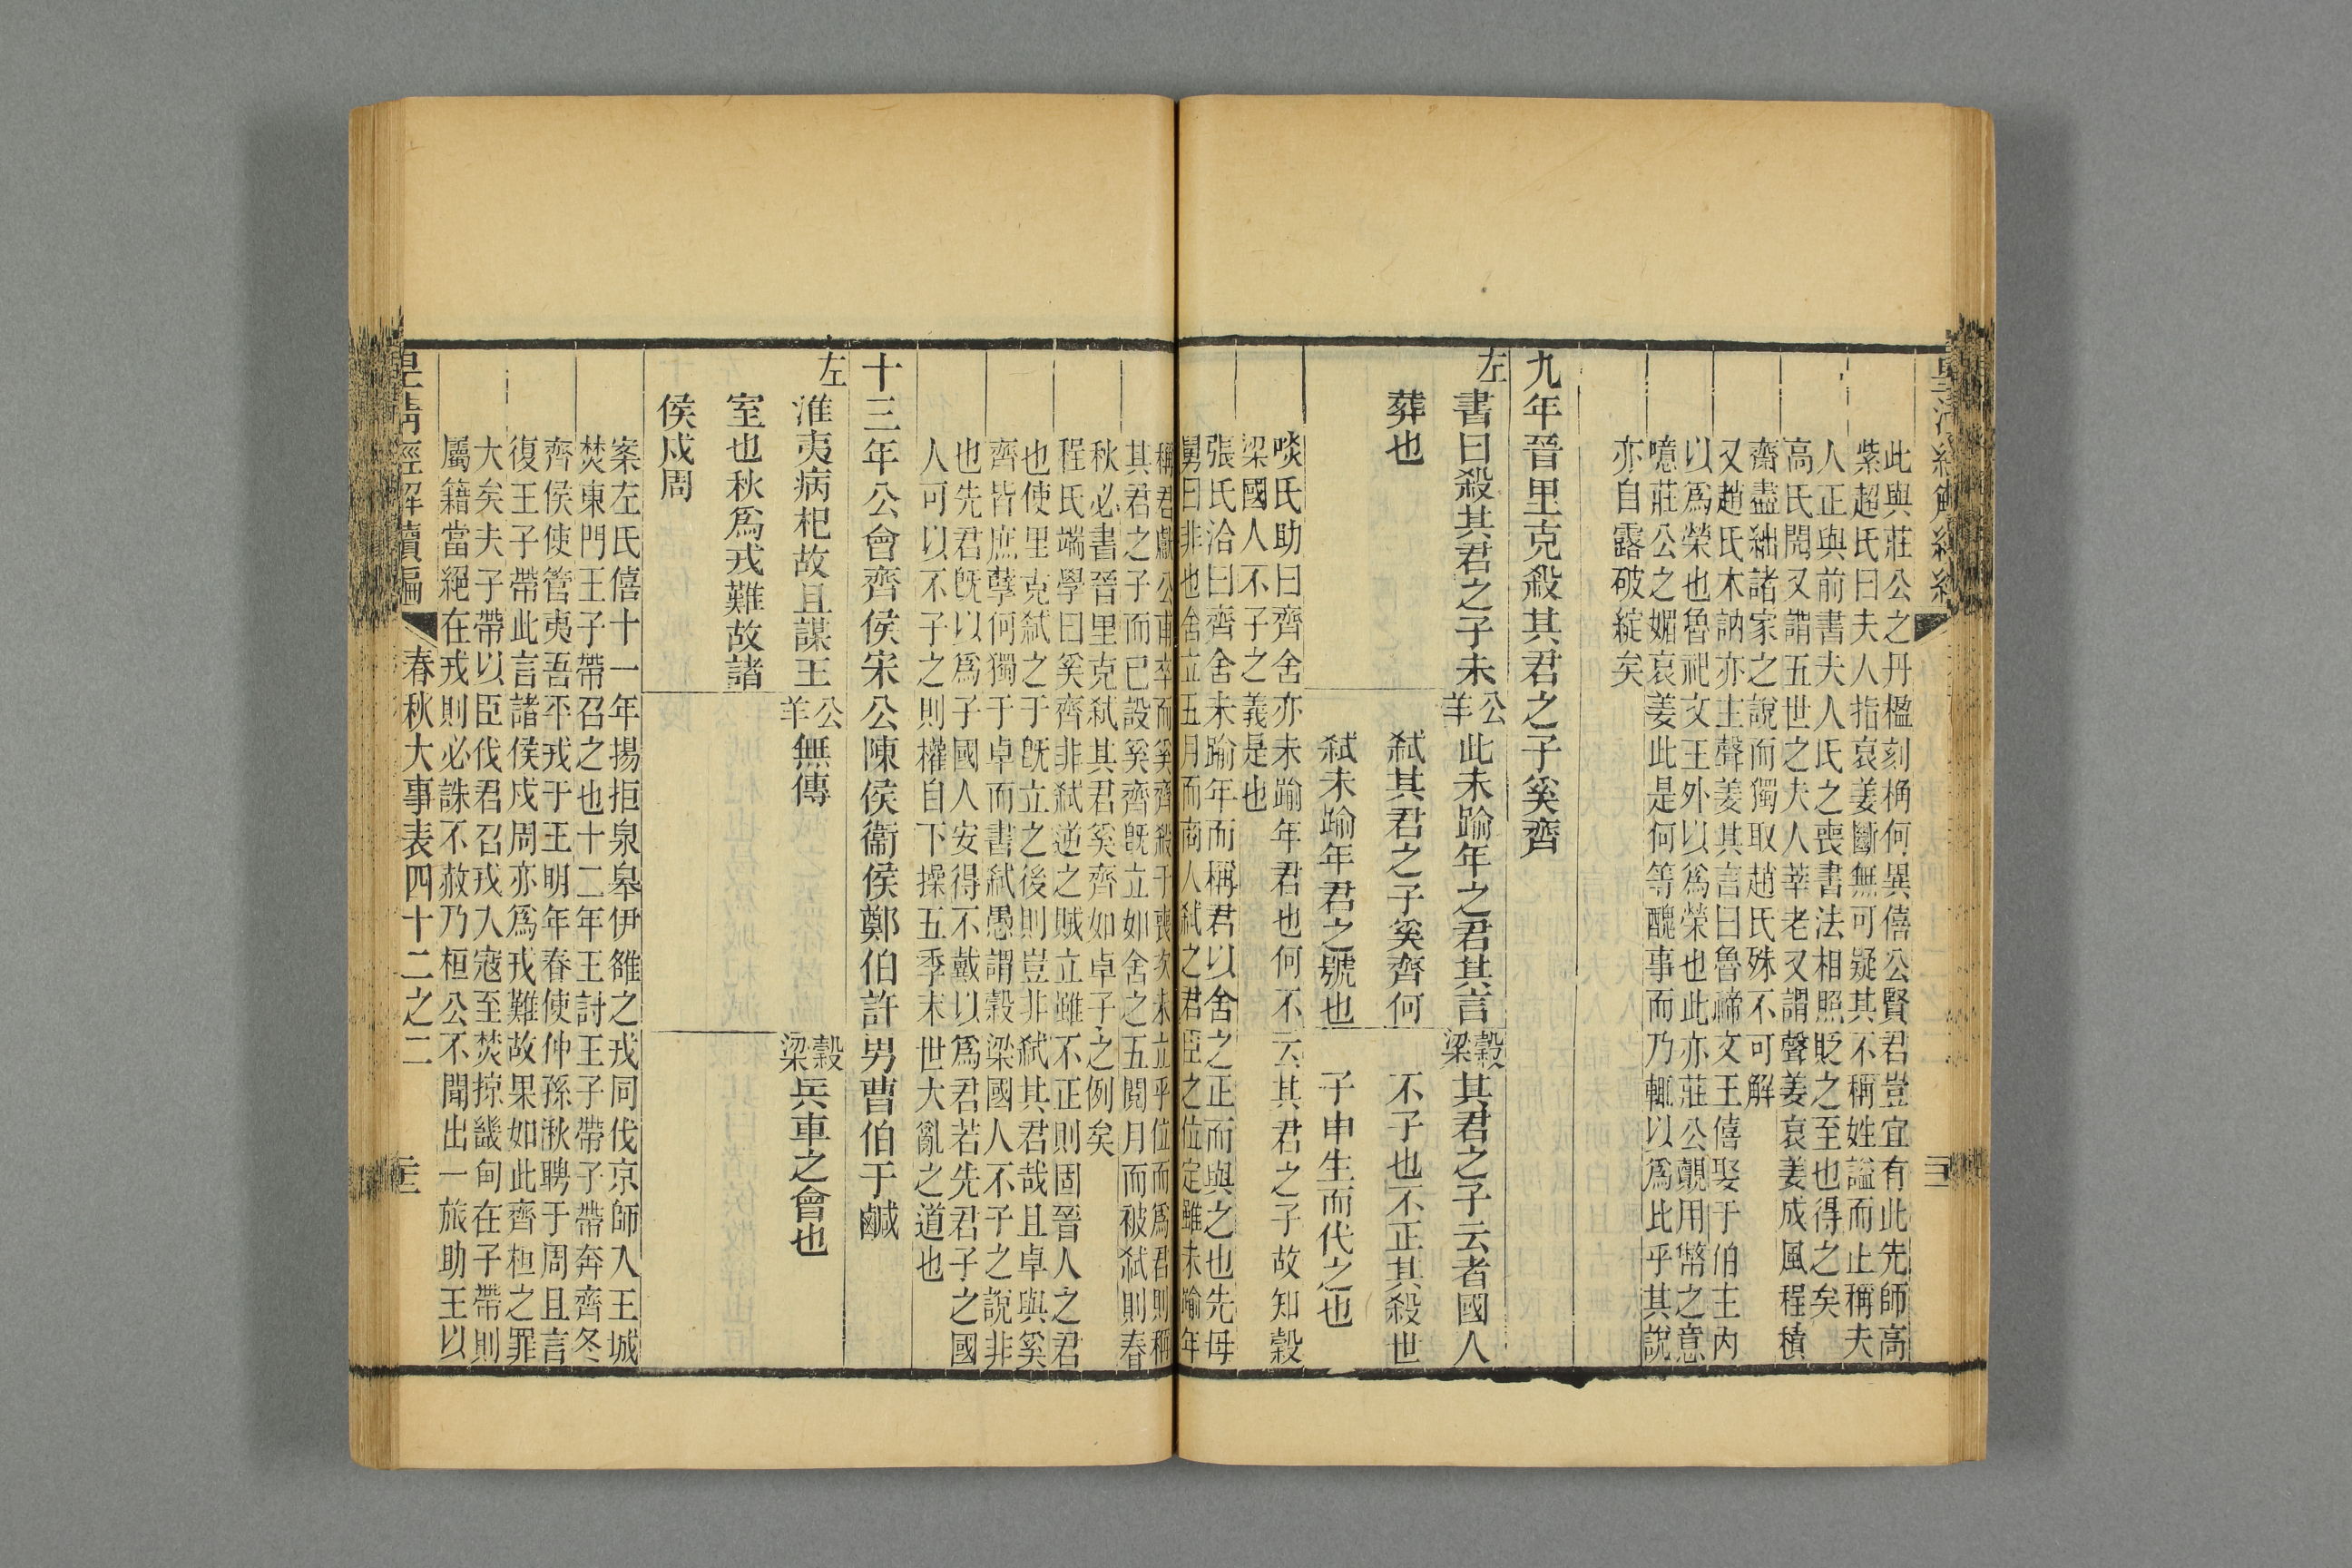 此與莊公之丹楹刻桷何異僖公賢君豈宜有此先師高
紫超氏曰夫人指哀姜斷無可疑其不稱姓謚而止稱夫
人正與前書夫人氏之喪書法相照貶之至也得之矣
高氏閌又謂五世之夫人莘老又謂聲姜哀姜成風程積
齋盡絀諸家之說而獨取趙氏殊不可解
又趙氏木訥亦主聲姜其言曰魯禘文王僖娶于伯主內
以爲榮也魯祀文王外以爲榮也此亦莊公覿用幣之意
噫莊公之媚哀姜此是何等醜事而乃輒以爲比乎其說
亦自露破綻矣
九年晉里克殺其君之子奚齊
左
書曰殺其君之子未
葬也
公羊
此未踰年之君其言
弑其君之子奚齊何
弑未踰年君之號也
穀梁
其君之子云者國人
不子也不正其殺世
子申生而代之也
啖氏助曰齊舍亦未踰年君也何不云其君之子故知穀
梁國人不子之義是也
張氏洽曰齊舍未踰年而稱君以舍之正而與之也先母
舅曰非也舍立五月而商人弑之君臣之位定雖未踰年
稱君獻公甫卒而奚齊殺于喪次未立乎位而爲君則稱
其君之子而已設奚齊旣立如舍之五閱月而被弑則春
秋必書晉里克弑其君奚齊如卓子之例矣
程氏端學曰奚齊非弑逆之賊立雖不正則固晉人之君
也使里克弑之于旣立之後則豈非弑其君哉且卓與奚
齊皆庶孽何獨于卓而書弑愚謂穀梁國人不子之說非
也先君旣以爲子國人安得不戴以爲君若先君子之國
人可以不子之則權自下操五季末世大亂之道也
十三年公會齊侯宋公陳侯衞侯鄭伯許男曹伯于鹹
左
淮夷病杞故且謀王
室也秋爲戎難故諸
侯戍周
公羊
無傳
穀梁
兵車之會也
案左氏僖十一年揚拒泉皋伊雒之戎同伐京師入王城
焚東門王子帶召之也十二年王討王子帶子帶奔齊冬
齊侯使管夷吾平戎于王明年春使仲孫湫聘于周且言
復王子帶此言諸侯戍周亦爲戎難故果如此齊桓之罪
大矣夫子帶以臣伐君召戎入寇至焚掠畿甸在子帶則
屬籍當絕在戎則必誅不赦乃桓公不聞出一旅助王以
皇清經解續編
春秋大事表四十二之二